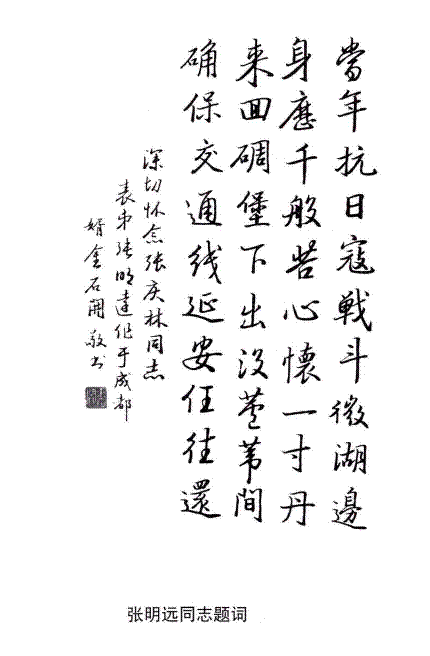 當年抗日寇戰斗微湖邊
身歷千般苦心懷一寸丹
来回碉堡下出没芦苇間
确保交通线延安任往還
深切怀念张庆林同志
表弟张明远作于成都
婿金石開敬书
张明远同志题词